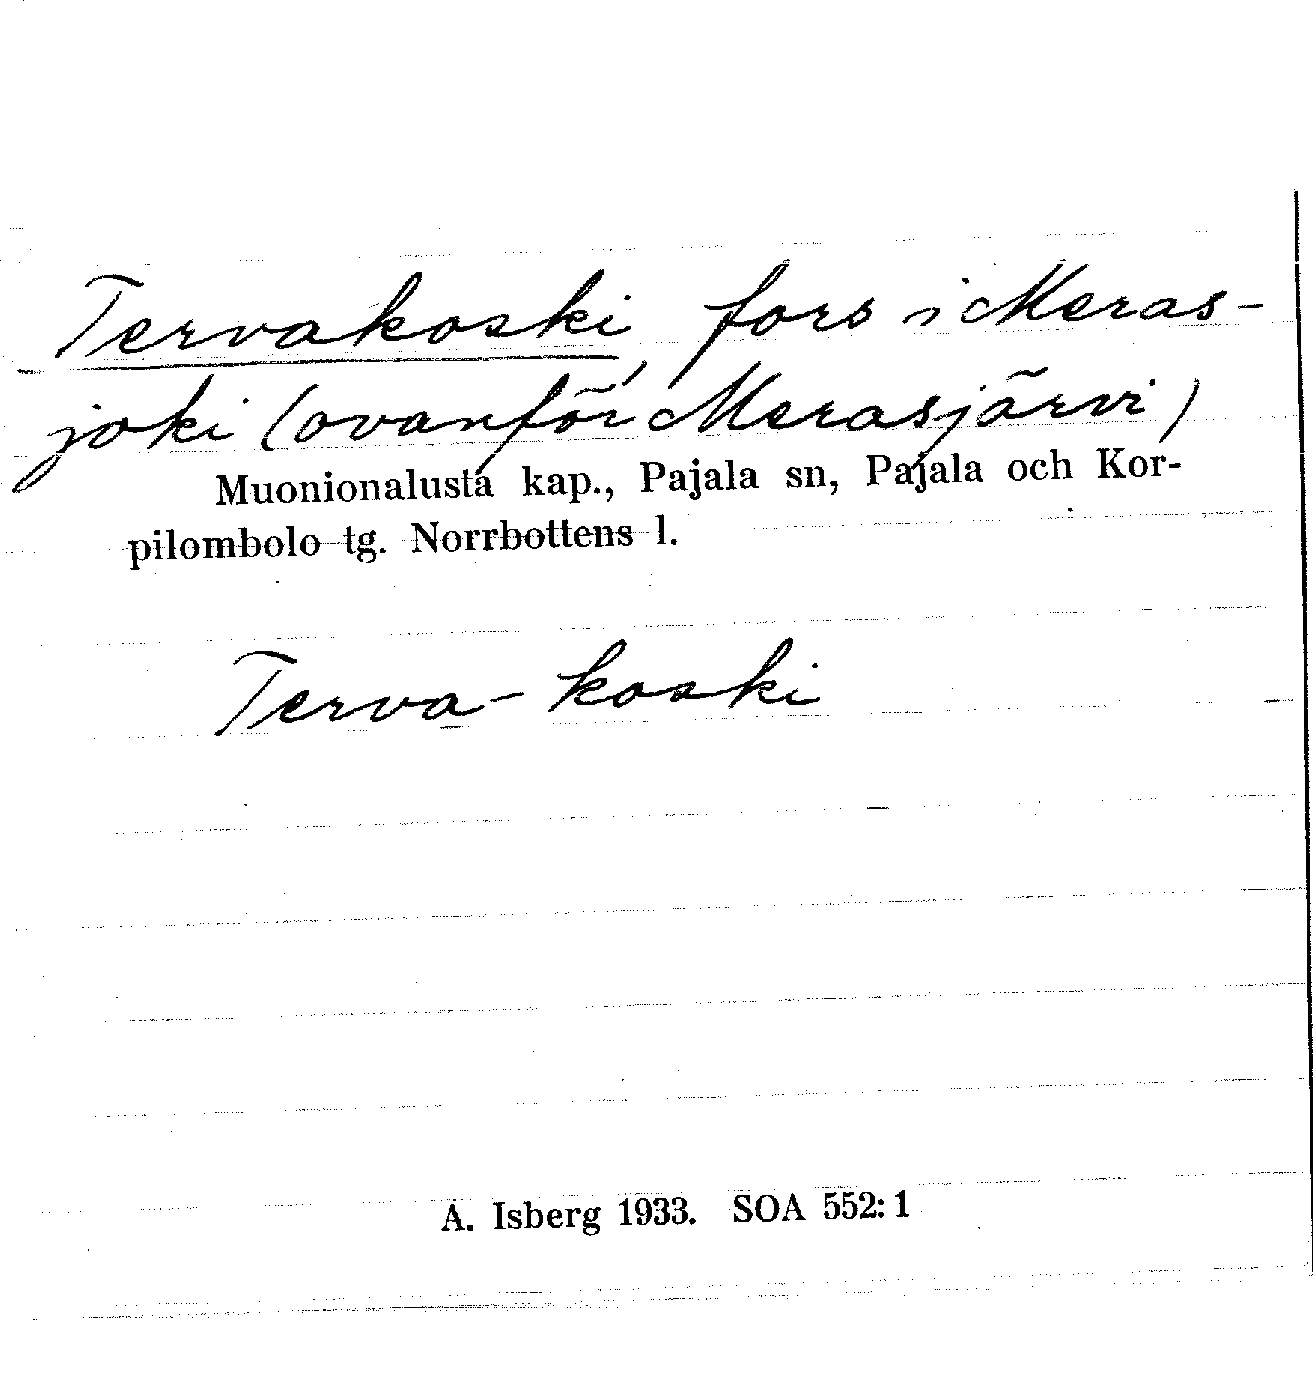 Tervakoski, fors i Meras-
joki (ovanför Merasjärvi)
Muonionalusta kap., Pajala sn, Pajala och Kor-
pilombolo tg. Norrbottens l.
Terva-koski
A. Isberg 1933. SOA 552:1